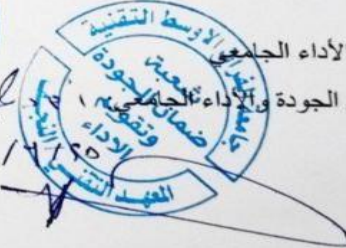 لأداء الجامعي
الجودة والأداء الجامعي
جامعة الفرات الاوسط التقنية
شعبة
ضمان الجودة
وتقويم
الاداء
المعهد التقني النجف